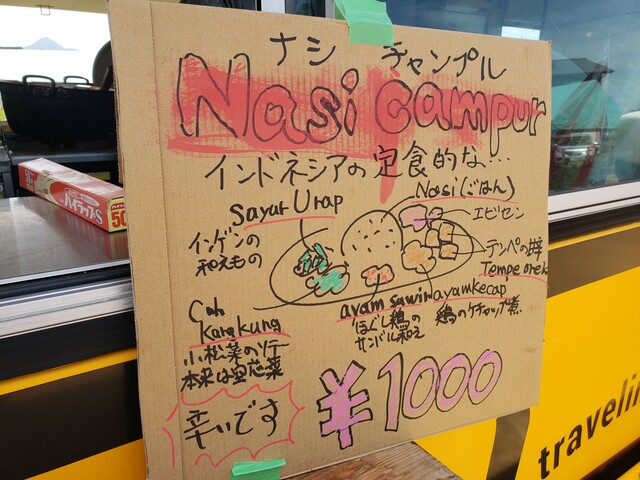 ナシ チャンプル
Nasi campur
インドネシアの定食的な…
Sayur Urap
インゲンの
和えもの
Nasi(ごはん)
エビセン
テンペの
Tempe orek
Cah
Kangkung
小松菜のソテー
本来は空芯菜
ayam suwir
ほぐし鶏の
サンバル和え
ayam kecap
鶏のケチャップ煮
辛いです
¥1000
ハイラップS
50
travelin